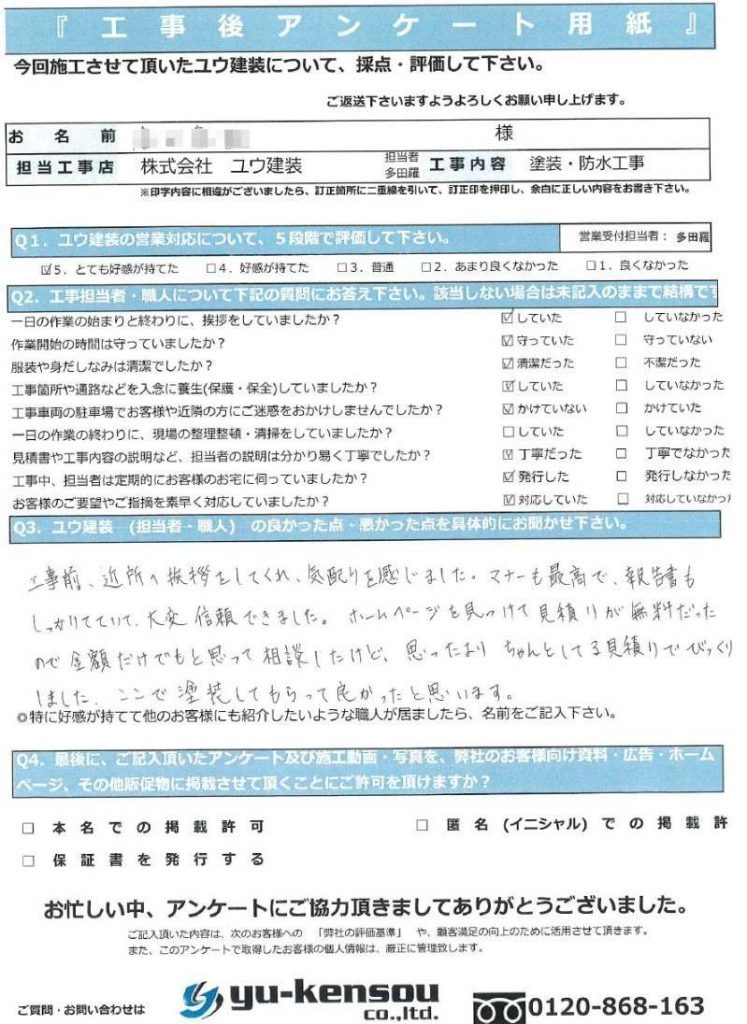 『工事後アンケート用紙』
今回施工させて頂いたユウ建装について、採点・評価して下さい。
ご返送下さいますようよろしくお願い申し上げます。
お名前 様
担当工事店 株式会社 ユウ建装 担当者 多田羅 工事内容 塗装・防水工事
※印字内容に相違がございましたら、訂正箇所に二重線を引いて、訂正印を押印し、余白に正しい内容をお書き下さい。
Q1．ユウ建装の営業対応について、５段階で評価して下さい。 営業受付担当者：多田羅
☑5．とても好感が持てた □4．好感が持てた □3．普通 □2．あまり良くなかった □1．良くなかった
Q2．工事担当者・職人について下記の質問にお答え下さい。該当しない場合は未記入のままで結構です
一日の作業の始まりと終わりに、挨拶をしていましたか？ ☑していた □ していなかった
作業開始の時間は守っていましたか？ ☑守っていた □ 守っていない
服装や身だしなみは清潔でしたか？ ☑清潔だった □ 不潔だった
工事箇所や通路などを入念に養生(保護・保全)していましたか？ ☑していた □ していなかった
工事車両の駐車場でお客様や近隣の方にご迷惑をおかけしませんでしたか？ ☑かけていない □ かけていた
一日の作業の終わりに、現場の整理整頓・清掃をしていましたか？ □していた □ していなかった
見積書や工事内容の説明など、担当者の説明は分かり易く丁寧でしたか？ ☑丁寧だった □ 丁寧でなかった
工事中、担当者は定期的にお客様のお宅に伺っていましたか？ ☑発行した □ 発行しなかった
お客様のご要望やご指摘を素早く対応していましたか？ ☑対応していた □ 対応していなかった
Q3．ユウ建装 (担当者・職人) の良かった点・悪かった点を具体的にお聞かせ下さい。
工事前、近所の挨拶をしてくれ、気配りを感じました。マナーも最高で、報告書も
しっかりしていて、大変信頼できました。ホームページを見つけて見積りが無料だった
ので金額だけでもと思って相談したけど、思ったより ちゃんとしてる見積りでびっくり
しました。ここで塗装してもらって良かったと思います。
◎特に好感が持てて他のお客様にも紹介したいような職人が居ましたら、名前をご記入下さい。
Q4．最後に、ご記入頂いたアンケート及び施工動画・写真を、弊社のお客様向け資料・広告・ホーム
ページ、その他販促物に掲載させて頂くことにご許可を頂けますか？
□ 本名での掲載許可 □ 匿名(イニシャル)での掲載許
□ 保証書を発行する
お忙しい中、アンケートにご協力頂きましてありがとうございました。
ご記入頂いた内容は、次のお客様への 「弊社の評価基準」 や、顧客満足の向上のために活用させて頂きます。
また、このアンケートで取得したお客様の個人情報は、厳正に管理致します。
ご質問・お問い合わせは yu-kensou co.,ltd. 0120-868-163